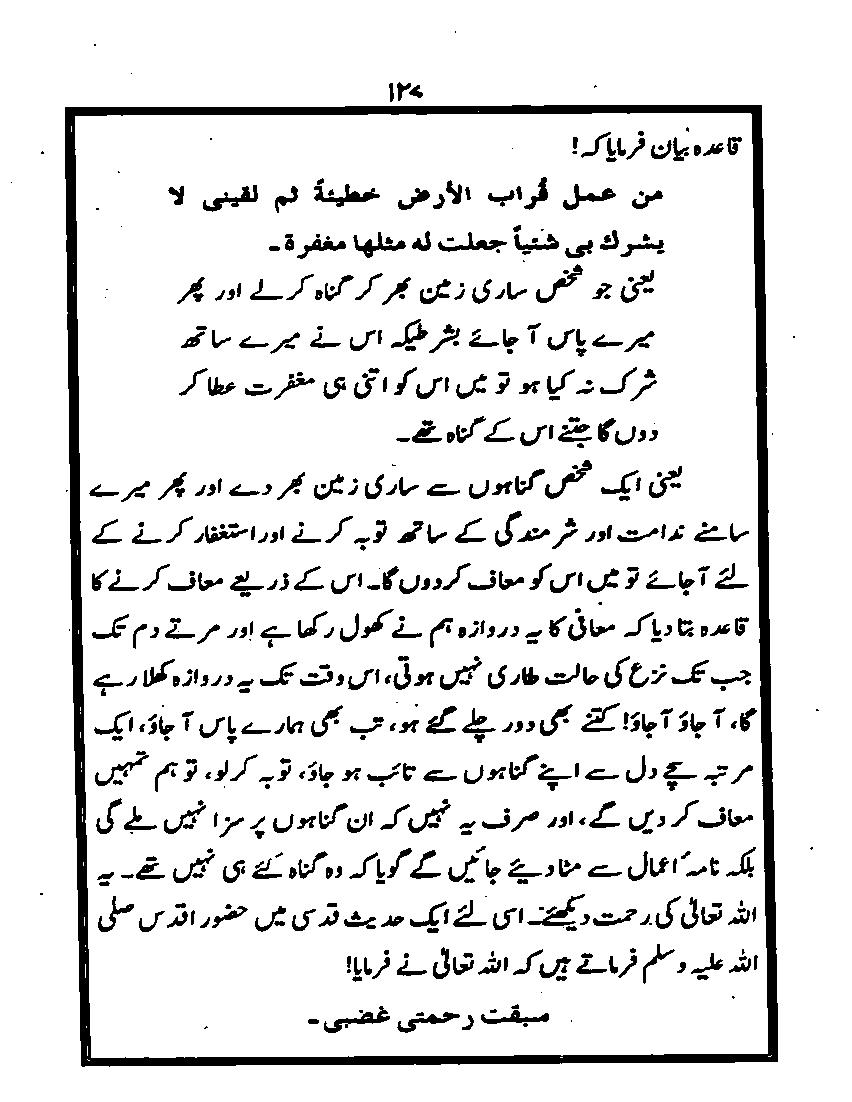 ۱۲۷
قاعدہ بیان فرمایا کہ!
من عمل قُراب الأرض خطيئةً ثم لقينى لا
يشرك بى شئياً جعلت له مثلها مغفرة۔
یعنی جو شخص ساری زمین بھر کر گناہ کرلے اور پھر
میرے پاس آ جائے بشرطیکہ اس نے میرے ساتھ
شرک نہ کیا ہو تو میں اس کو اتنی ہی مغفرت عطا کر
دوں گا جتنے اس کے گناہ تھے۔
یعنی ایک شخص گناہوں سے ساری زمین بھر دے اور پھر میرے
سامنے ندامت اور شرمندگی کے ساتھ توبہ کرنے اور استغفار کرنے کے
لئے آ جائے تو میں اس کو معاف کردوں گا۔ اس کے ذریعے معاف کرنے کا
قاعدہ بتا دیا کہ معافی کا یہ دروازہ ہم نے کھول رکھا ہے اور مرتے دم تک
جب تک نزع کی حالت طاری نہیں ہوتی، اس وقت تک یہ دروازہ کھلا رہے
گا، آ جاؤ آ جاؤ! کتنے بھی دور چلے گئے ہو، تب بھی ہمارے پاس آ جاؤ، ایک
مرتبہ سچے دل سے اپنے گناہوں سے تائب ہو جاؤ، توبہ کرلو، تو ہم تمہیں
معاف کر دیں گے، اور صرف یہ نہیں کہ ان گناہوں پر سزا نہیں ملے گی
بلکہ نامہ اعمال سے مٹا دیئے جائیں گے گویا کہ وہ گناہ کئے ہی نہیں تھے۔ یہ
اللہ تعالیٰ کی رحمت دیکھئے۔ اسی لئے ایک حدیث قدسی میں حضور اقدس صلی
اللہ علیہ وسلم فرماتے ہیں کہ اللہ تعالیٰ نے فرمایا!
سبقت رحمتى غضبى۔